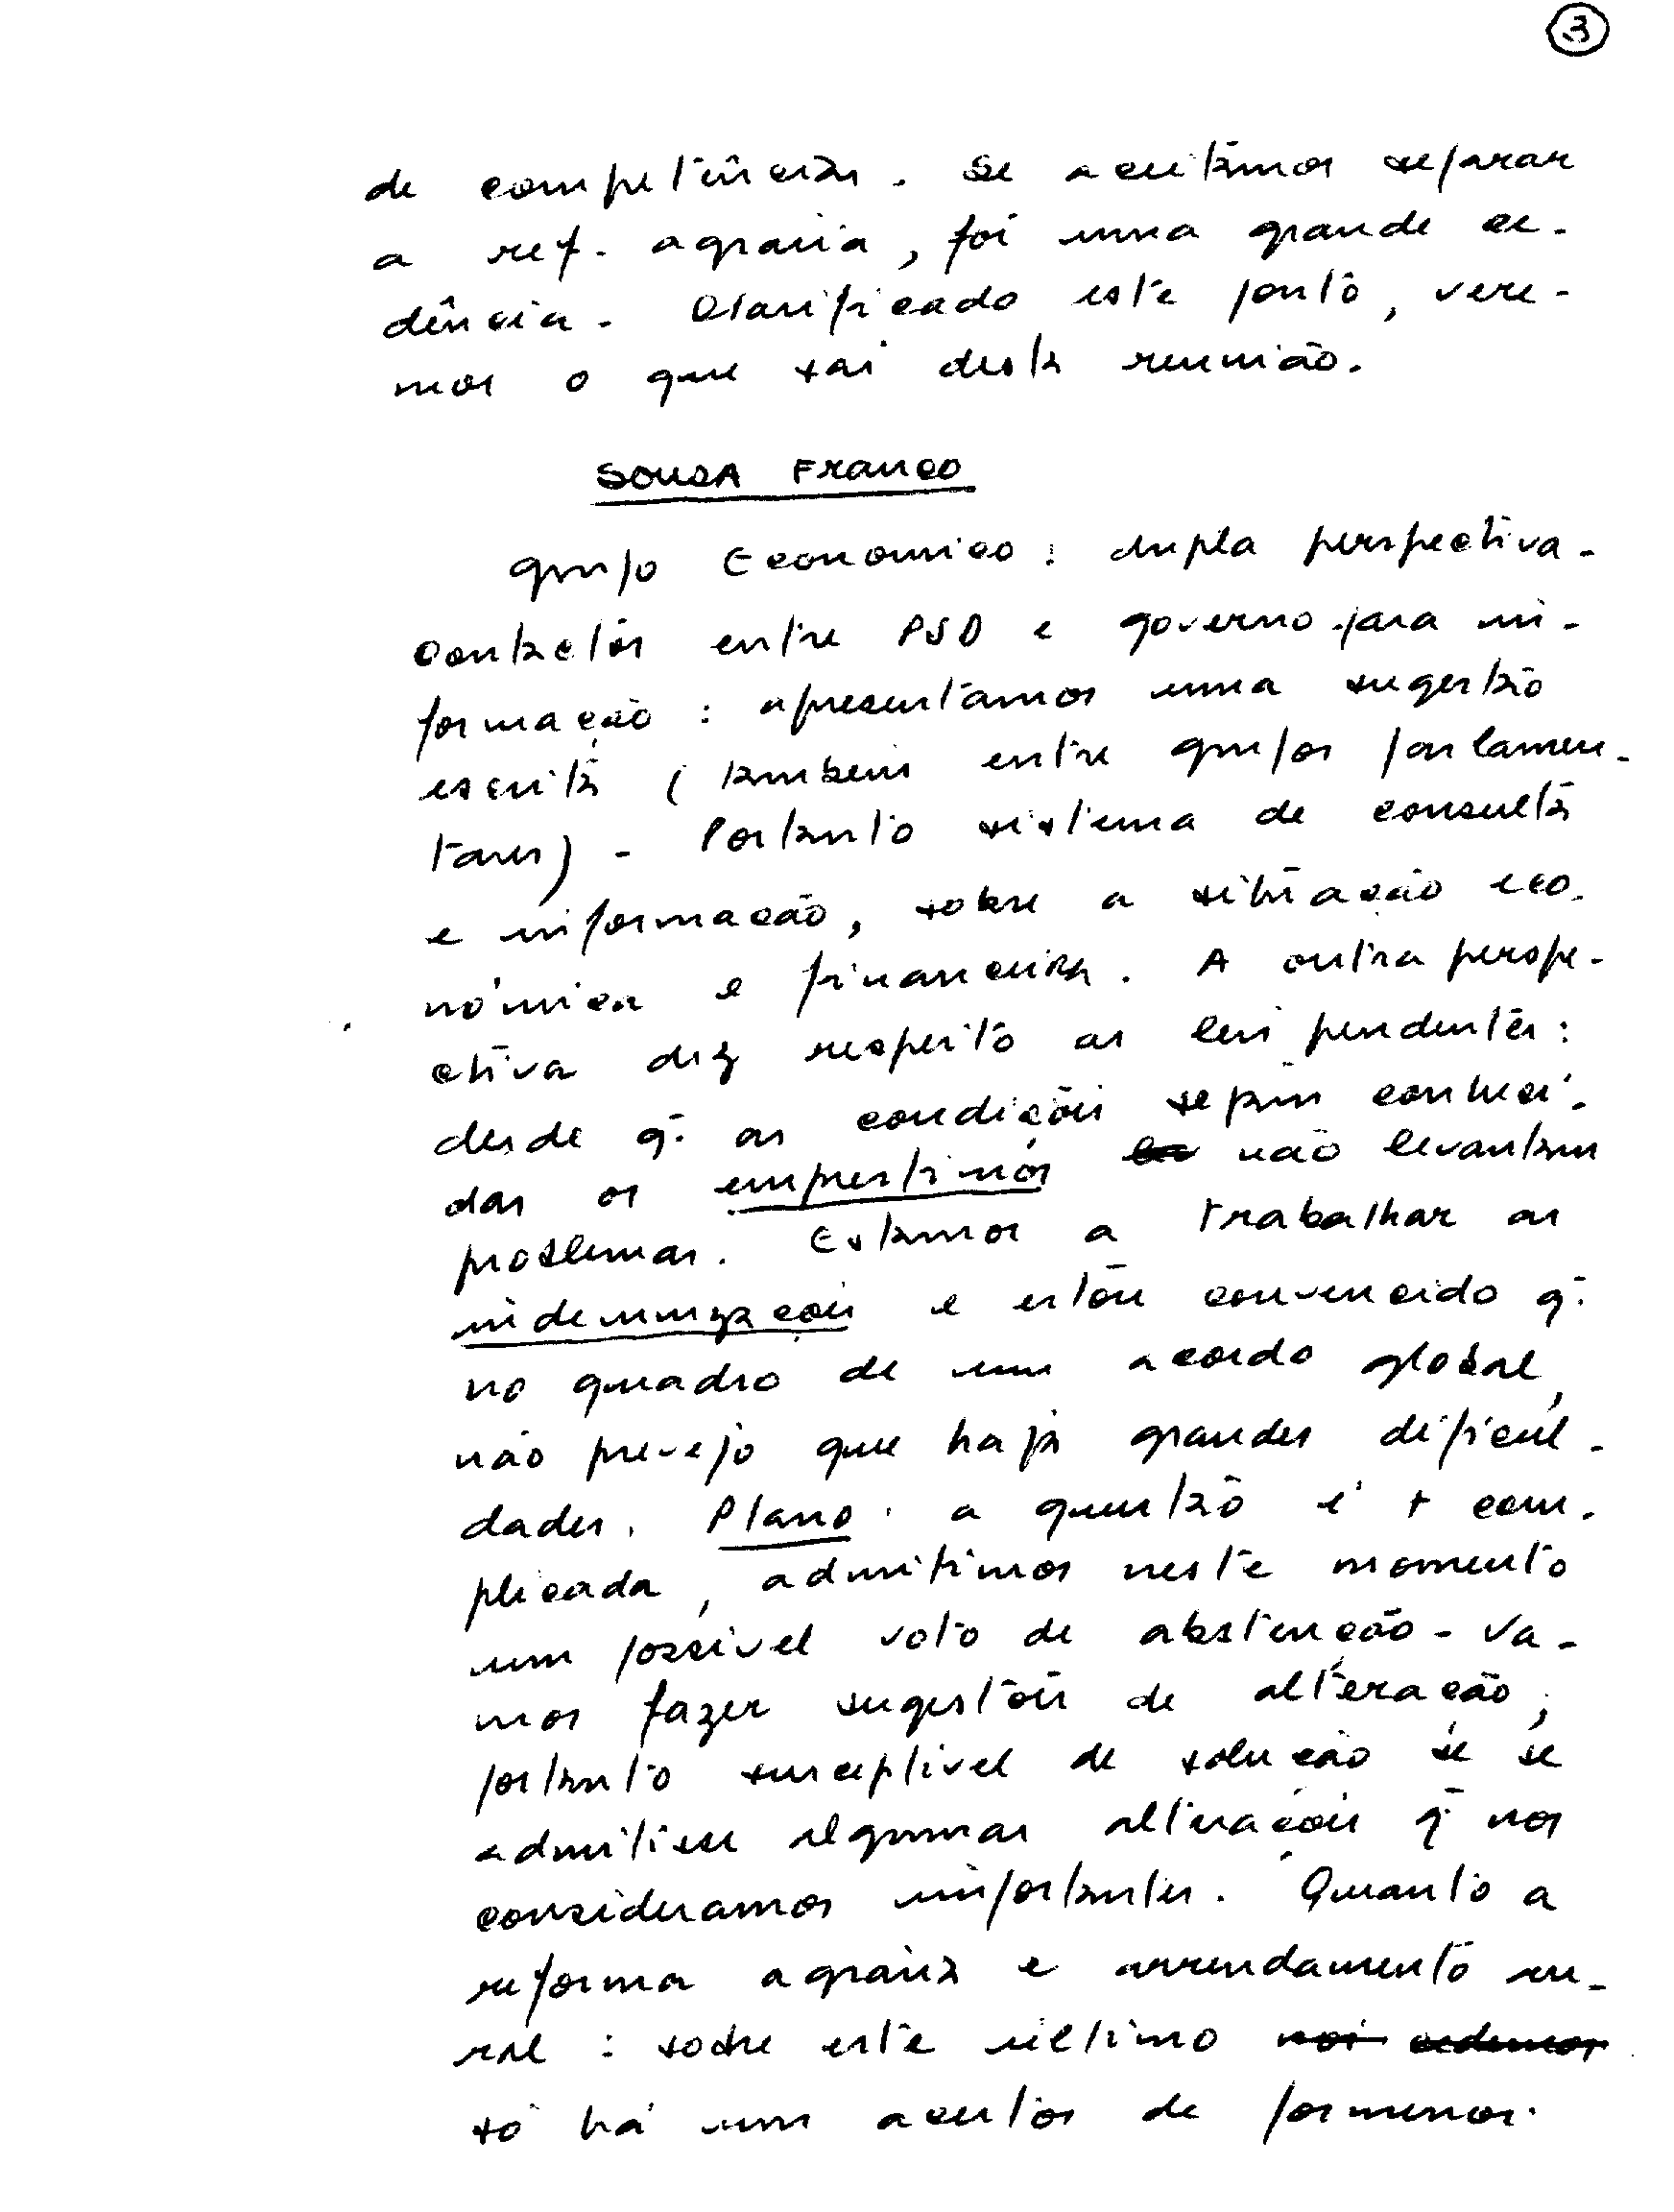 3
de competências. Se aceitámos separar
a ref. agrária, foi uma grande ce-
dência. Clarificado este ponto, vere-
mos o que sai desta reunião.
SOUSA FRANCO
Grupo Economico: dupla perspectiva -
Contactos entre PSD e governo para in-
formação: apresentámos uma sugestão
escrita (tambem entre grupos parlamen-
tares) - Portanto sistema de consulta
e informação, sobre a situação eco-
nómica e financeira. A outra perspe-
ctiva diz respeito as leis pendentes:
desde q. as condições sejam conheci-
das os emprestimos não levantam
problemas. Estamos a trabalhar as
indemnizações e estou convencido q.
no quadro de um acordo global,
não prevejo que haja grandes dificul-
dades. Plano: a questão é + com-
plicada, admitimos neste momento
um possivel voto de abstenção - Va-
mos fazer sugestões de alteração,
portanto susceptivel de solução se se
admitisse algumas alterações q nos
consideramos importantes. Quanto a
reforma agrária e arrendamento ru-
ral: sobre este último nós cedemos
só há um acertos de pormenor.